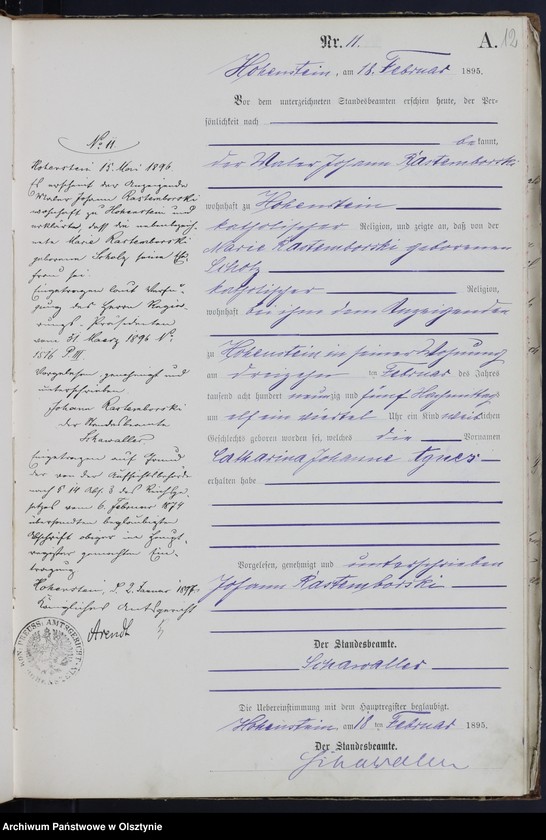 Nr. 11.
A.
12
Hohenstein, am 18. Februar 1895.
Vor dem unterzeichneten Standesbeamten erschien heute, der Per-
sönlichkeit nach
bekannt,
der Maler Johann Rastemborski
wohnhaft zu Hohenstein
katholischer Religion, und zeigte an, daß von der
Marie Rastemborski geborenen
Scholz
katholischer Religion,
wohnhaft bei ihm dem Anzeigenden
zu Hohenstein in seiner Wohnung
am dreizehn ten Februar des Jahres
tausend acht hundert neunzig und fünf Nachmittag
um elf ein viertel Uhr ein Kind weiblichen
Geschlechts geboren worden sei, welches die Vornamen
Catharina Johanne Agnes
erhalten habe
Vorgelesen, genehmigt und unterschrieben
Johann Rastemborski
Der Standesbeamte.
Schawaller
Die Uebereinstimmung mit dem Hauptregister beglaubigt.
Hohenstein, am 18 ten Februar 1895.
Der Standesbeamte.
Schawaller
No 11
Hohenstein 15. Mai 1896.
Es erscheint der Anzeigende
Maler Johann Rastemborski
wohnhaft zu Hohenstein und
erklärte, daß die nebenbezeich
nete Marie Rastemborski
geborene Scholz seine Ehe
frau sei.
Eingetragen laut Verfü-
gung des Herrn Regier-
ungs-Präsidenten
vom 31 Maerz 1896 No.
1516 P. III.
Vorgelesen genehmigt und
unterschrieben
Johann Rastemborski
der Standesbeamte
Schawaller
Eingetragen auf Grund
der von der Aufsichtsbehörde
nach § 14 Abs. 3 des Reichsge-
setzes vom 6. Februar 1874
übersandten beglaubigten
Abschrift obiger im Haupt-
register gemachten Ein-
tragung
Hohenstein, d. 2. Januar 1897.
Königliches Amtsgericht
Arendt
KÖN. PREUSS. AMTSGERICHT
Archiwum Państwowe w Olsztynie